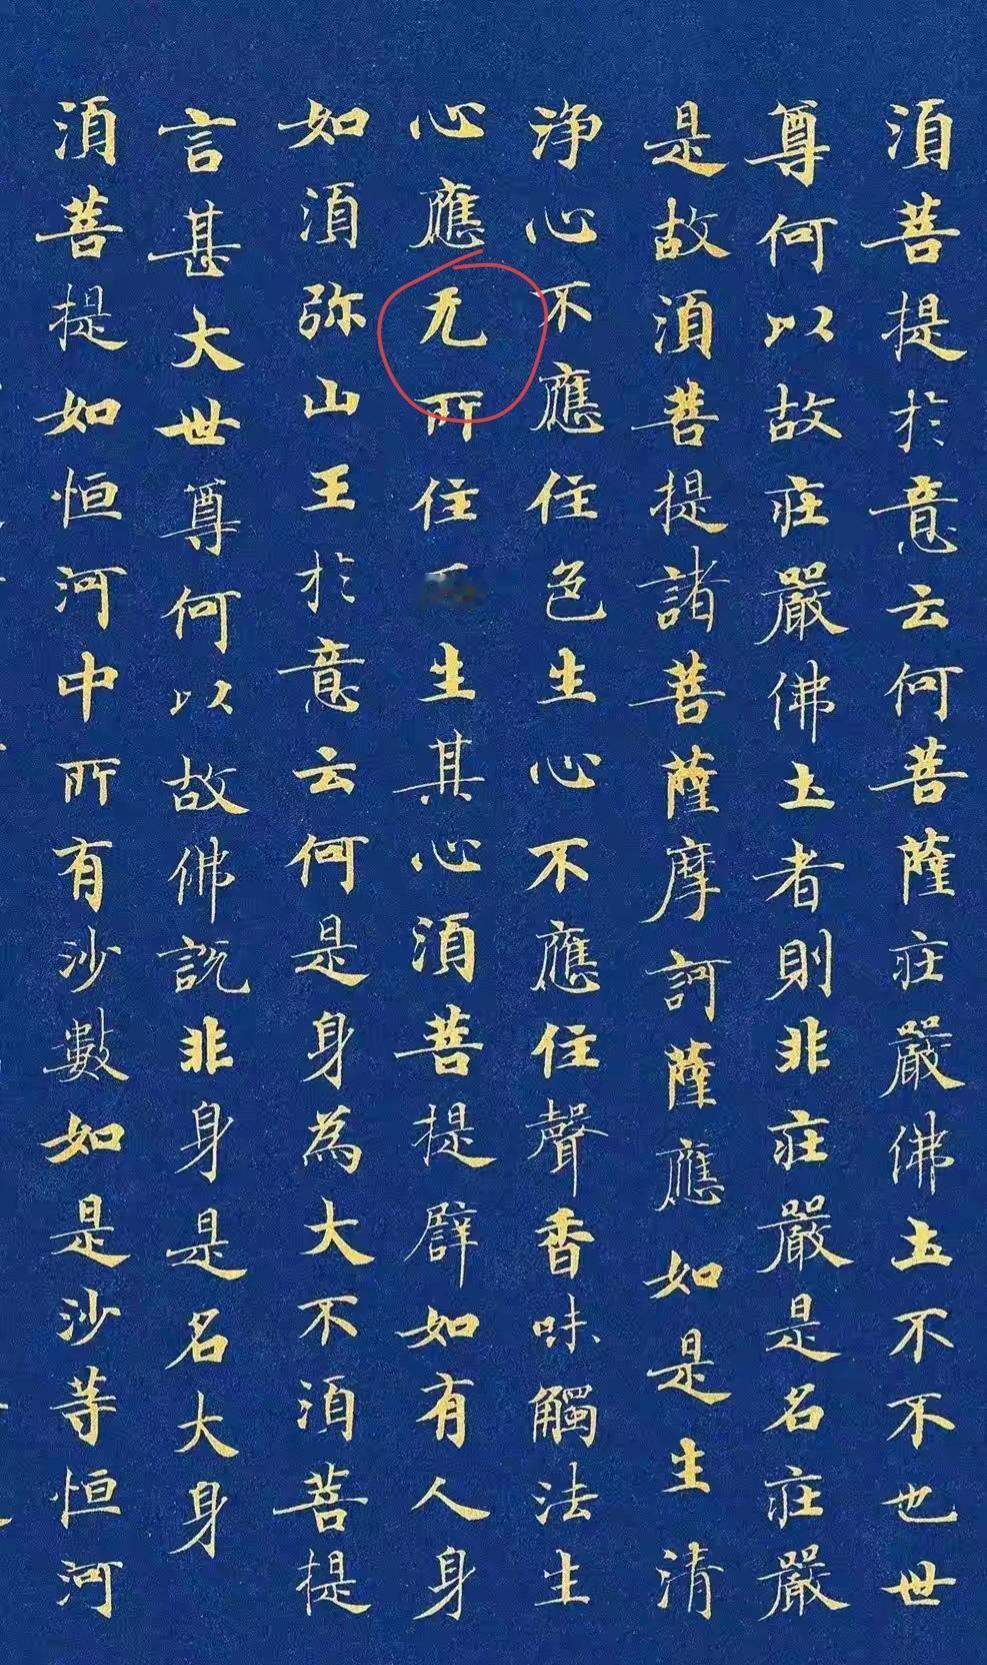 湏菩提扵意云何菩薩莊嚴佛土不不也世
尊何以故莊嚴佛土者則非莊嚴是名莊嚴
是故湏菩提諸菩薩摩訶薩應如是生清
浄心不應住色生心不應住聲香味觸法生
心應无所住生其心湏菩提辟如有人身
如湏弥山王扵意云何是身為大不湏菩提
言甚大世尊何以故佛説非身是名大身
湏菩提如恒河中所有沙數如是沙等恒河